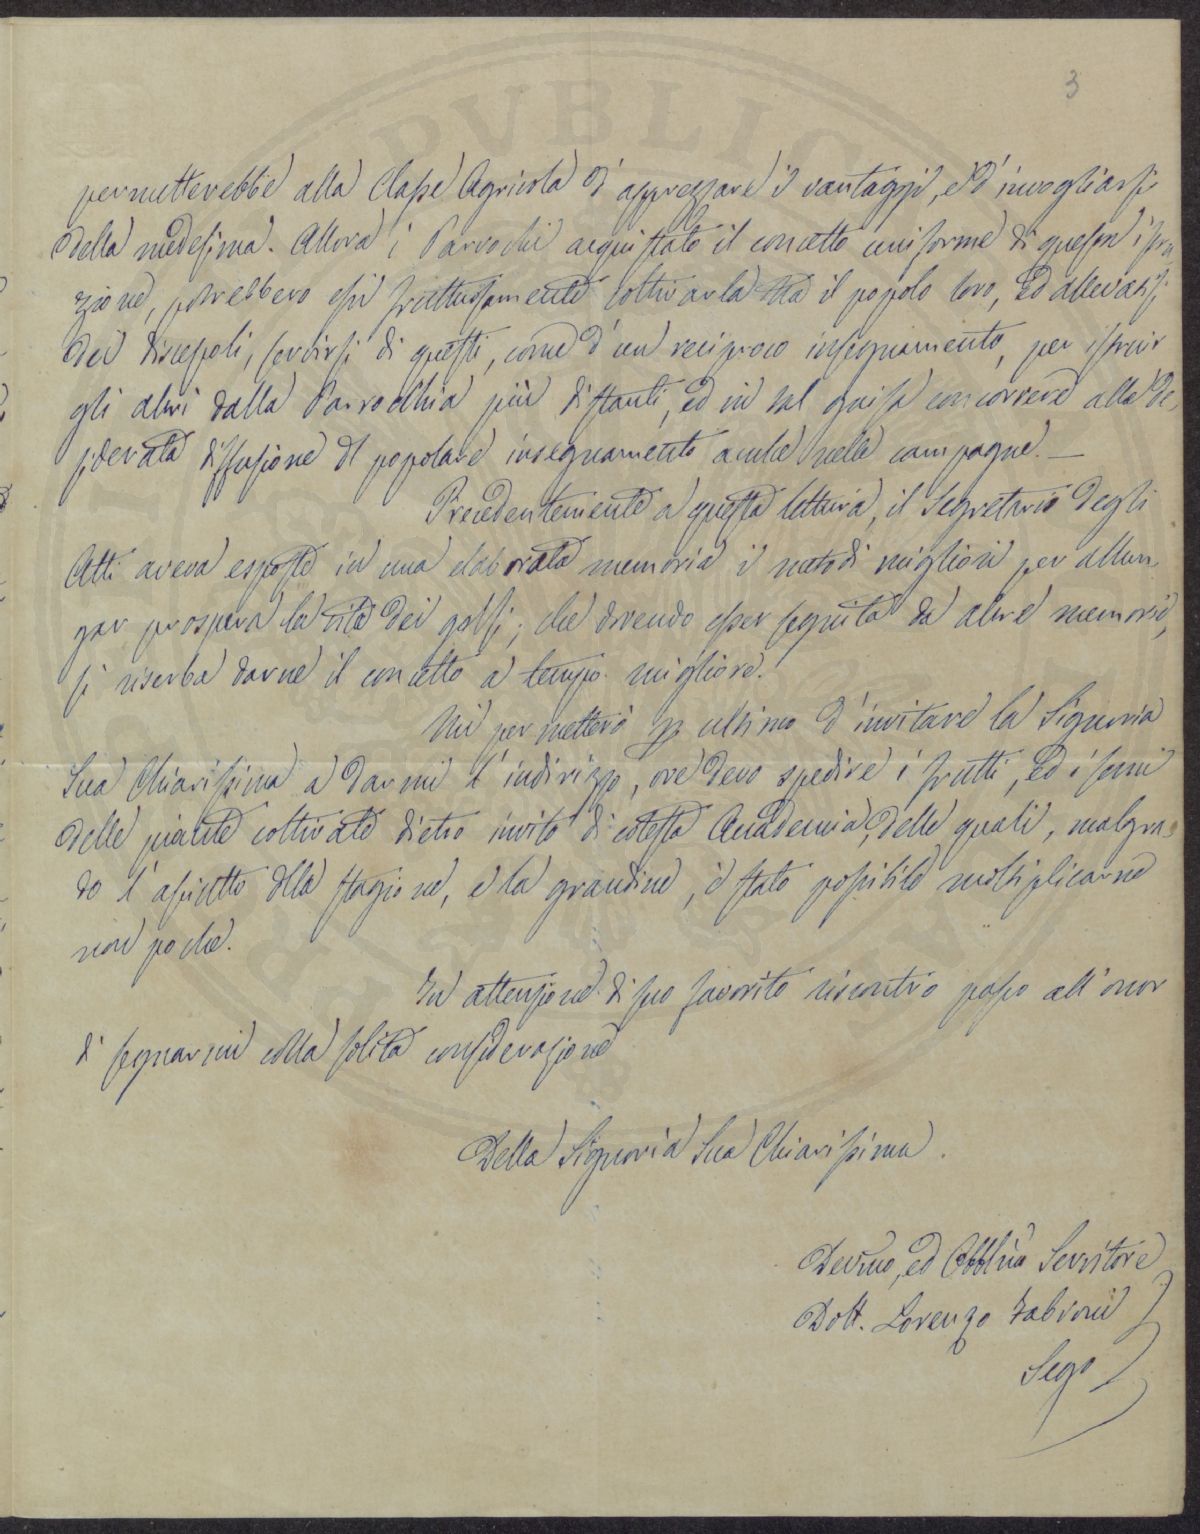 3
permetterebbe alla Classe Agricola d'apprezzare i vantaggj, e d'invogliarsi
della medesima. Allora i Parrochi acquistato il concetto uniforme di questa istru
zione, potrebbero essi fruttuosamente coltivarla tra il popolo loro, ed allevatisi
dei discepoli, servirsi di questi, come d'un reciproco insegnamento, per istruir
gli altri dalla Parrocchia più distanti, ed in tal guisa concorrere alla de,
siderata diffusione del popolare insegnamento anche nelle campagne. —
Precedentemente a questa lettura, il Segretario degli
Atti aveva esposte in una elaborata memoria i metodi migliori per allun,
gar prospera la vita dei gelsi; che dovendo esser seguita da altre memorie,
si riserba darne il concetto a tempo migliore.
Mi permetterò per ultimo d'invitare la Signoria
Sua Chiarissima a darmi l'indirizzo, ove devo spedire i frutti, ed i semi
delle piante coltivate dietro invito di cotesta Accademia, delle quali, malgra,
do l'asciutto della stagione, e la grandine, è stato possibile moltiplicarne
non poche.
In attenzione di suo favorito riscontro passo all'onor
di segnarmi colla solita considerazione
Della Signoria Sua Chiarissima.
Devmo, ed Obblmo Servitore
Dott. Lorenzo Fabroni
Sego
PVBLIC